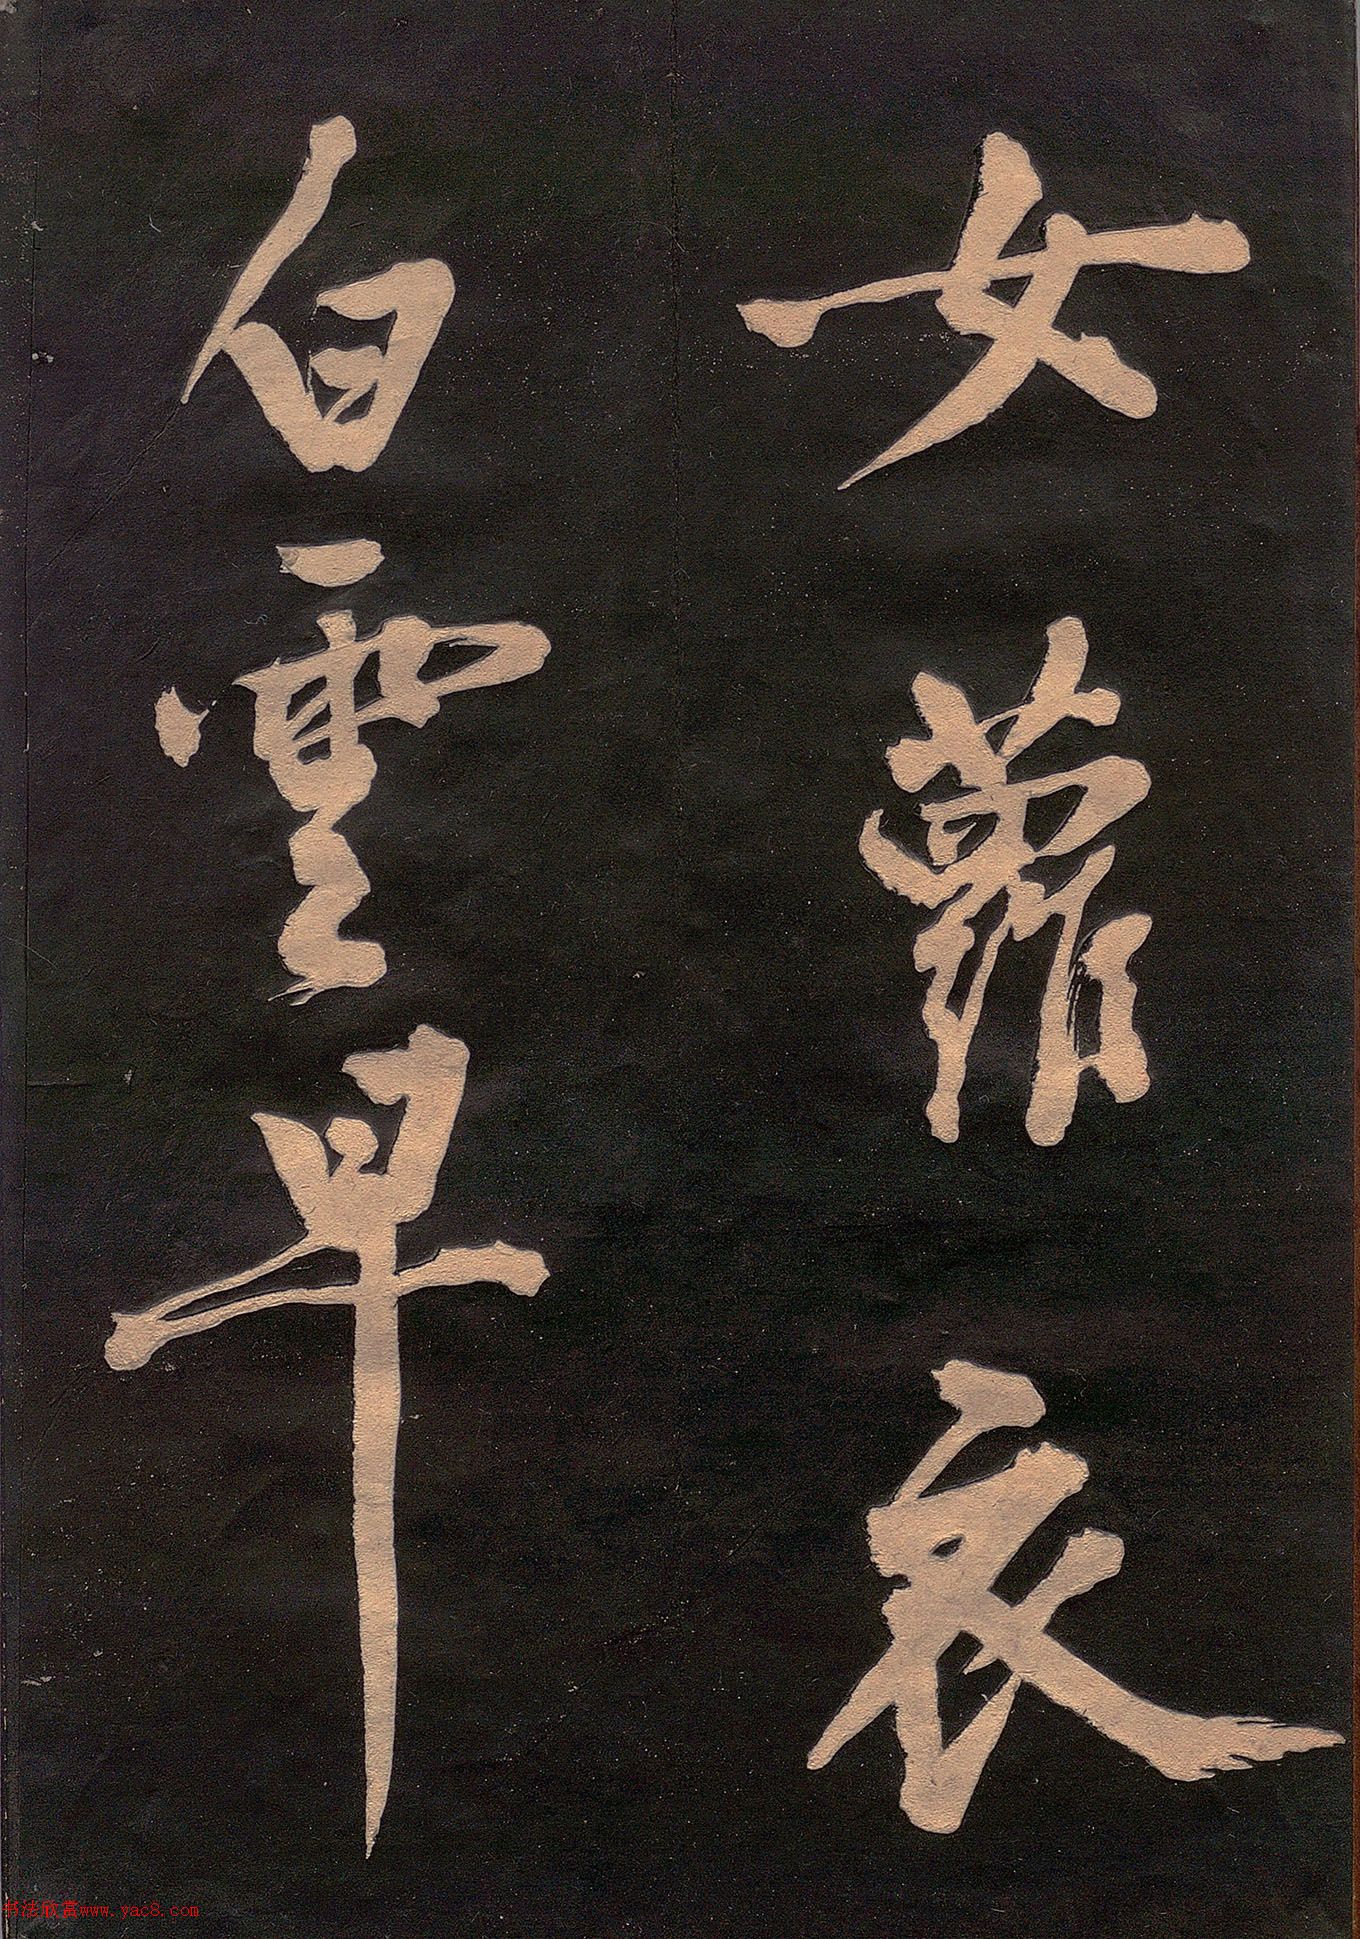 女蘿衣
白雲早
书法欣赏www.yac8.com